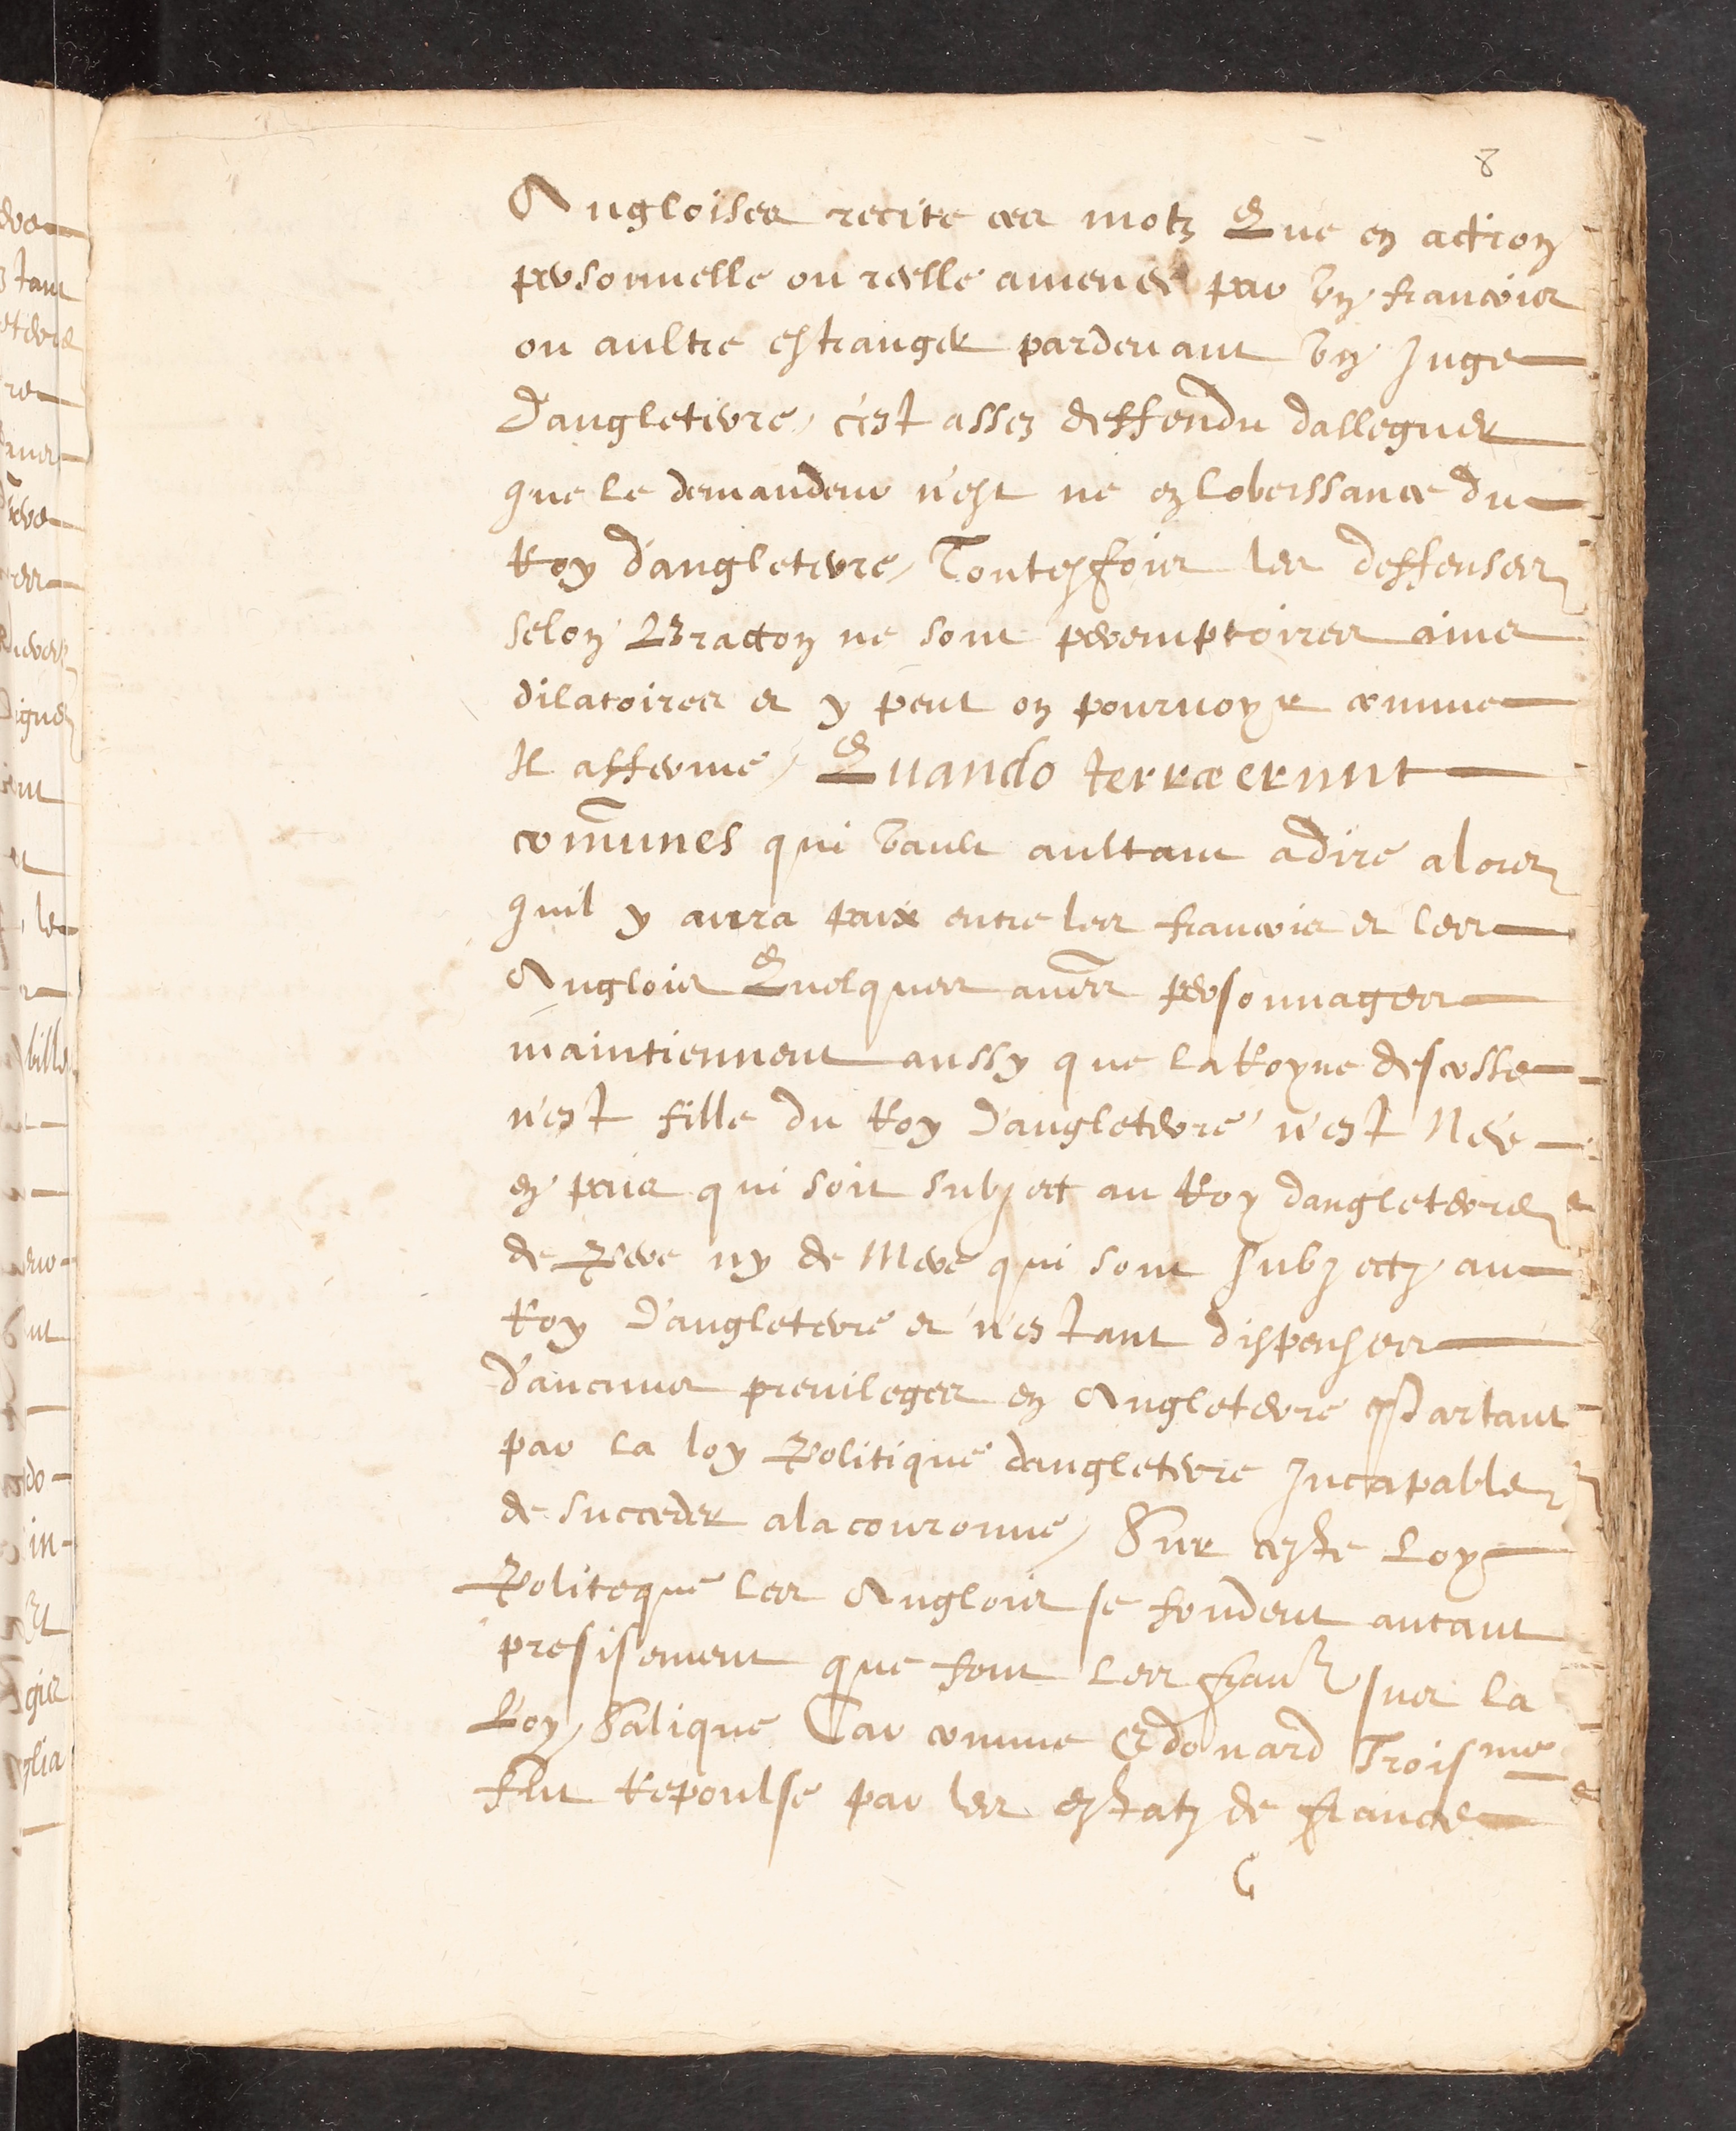 8
Angloises recite ces motz Que en action
personnelle ou reelle amenee par vn francois
ou aultre estranger pardeuant vn Juge
D'angleterre, c'est assez deffendu dalleguer
que le demandeur n'est ne en lobeissance du
Roy d'angleterre, Toutesfois les deffenses
selon Bracton ne sont peremptoires ains
dilatoires et y peut on pouruoyr comme
Il afferme, Quando terræ erunt
com̃unes qui vault aultant a dire alors
quil y aura paix entre les francois et les
Anglois Quelques aut͠res personnages
maintiennent aussy que la Royne descosse
n'est fille du Roy D'angleterre n'est Née
en pais qui soit subject au Roy dangleterre
de Pere ny de Mere qui sont subjectz au
Roy D'angleterre et n'estant dispenses
d'aucuns preuileges en Angleterre Partant
par la loy Politique dangleterre Jncapable
de succeder a la couronne, Sur ceste Loy
Politeque les Anglois se fondent autant
presisement que font les fran^s sur la
Loy Salique Car comme Edouard Trois^me
fut Repoulse par les estatz de france
C